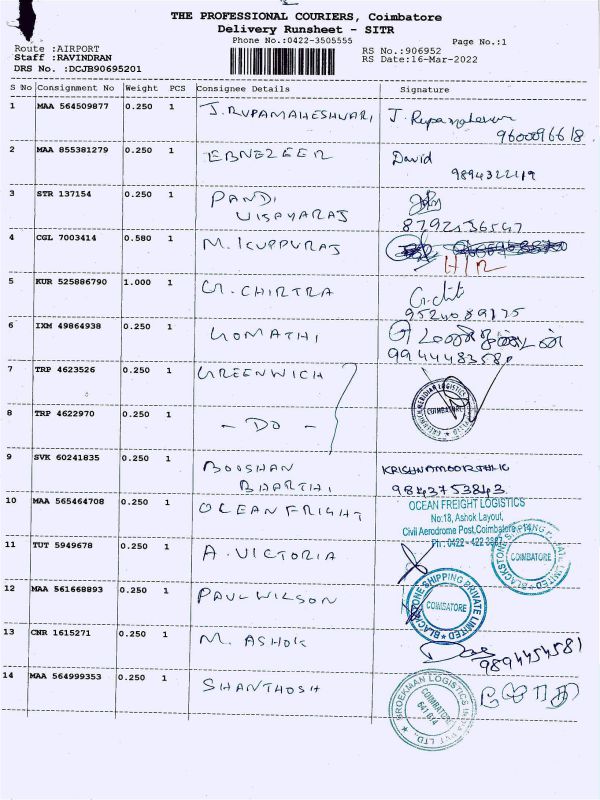 THE PROFESSIONAL COURIERS, Coimbatore
Delivery Runsheet - SITR
Phone No.:0422-3505555
Page No.:1
Route :AIRPORT
Staff :RAVINDRAN
DRS No. :DCJB90695201
RS No.:906952
RS Date:16-Mar-2022
S No Consignment No Weight PCS Consignee Details Signature
1 MAA 564509877 0.250 1 J. RUPAMAHESHVARI J. Rupamaheswari
9600096618
2 MAA 855381279 0.250 1 EBNEZEER David
9894322119
3 STR 137154 0.250 1 PANDI
VIJAYARAJ
8792536567
4 CGL 7003414 0.580 1 M. KUPPURAJ
H/R
5 KUR 525886790 1.000 1 G. CHITRA G. chit
9524089175
6 IXM 49864938 0.250 1 GOMATHI
9944483580
7 TRP 4623526 0.250 1 GREENWICH
COIMBATORE
8 TRP 4622970 0.250 1 - DO -
9 SVK 60241835 0.250 1 BOOSHAN
BHARTHI
KRISHNAMOORTHI G
9843753843
10 MAA 565464708 0.250 1 OCEAN FRIGHT
OCEAN FREIGHT LOGISTICS
No:18, Ashok Layout,
Civil Aerodrome Post, Coimbatore - 14
Ph: 0422 - 422
11 TUT 5949678 0.250 1 A. VICTORIA
COIMBATORE
12 MAA 561668893 0.250 1 PAUL WILSON
BLACKSTONE SHIPPING PRIVATE LIMITED
COIMBATORE
13 CNR 1615271 0.250 1 M. ASHOK
9894454581
14 MAA 564999353 0.250 1 SHANTHOSH
BROEKMAN LOGISTICS INDIA PVT LTD.,
COIMBATORE
641 014